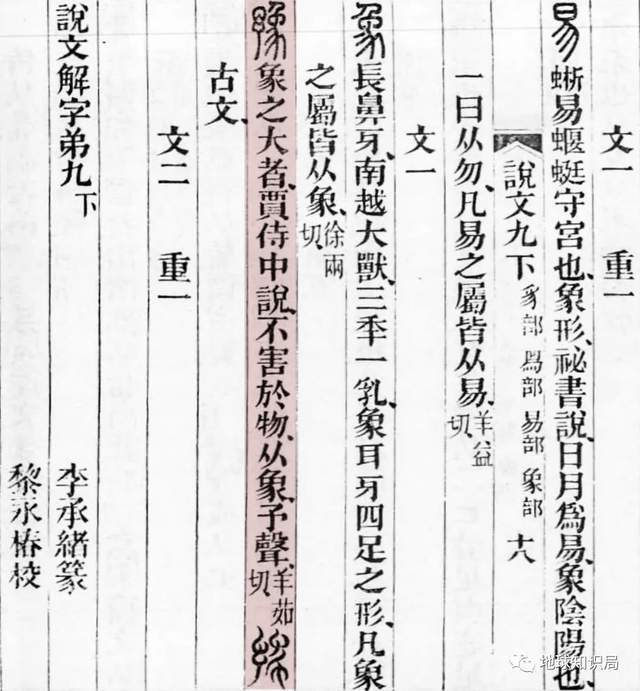 文一 重一
易 蜥易蝘蜓守宮也、象形、祕書說、日月爲易、象陰陽也、
說文九下 豸部 𤉡部 易部 象部 十八
一曰从勿、凡易之屬皆从易、羊益切
文一
象 長鼻牙、南越大獸、三秊一乳、象耳牙四足之形、凡象
之屬皆从象、徐兩切
豫 象之大者、賈侍中說、不害於物、从象、予聲、羊茹切
古文、
文二 重一
說文解字弟九下
李承緒篆
黎永椿校
地球知识局